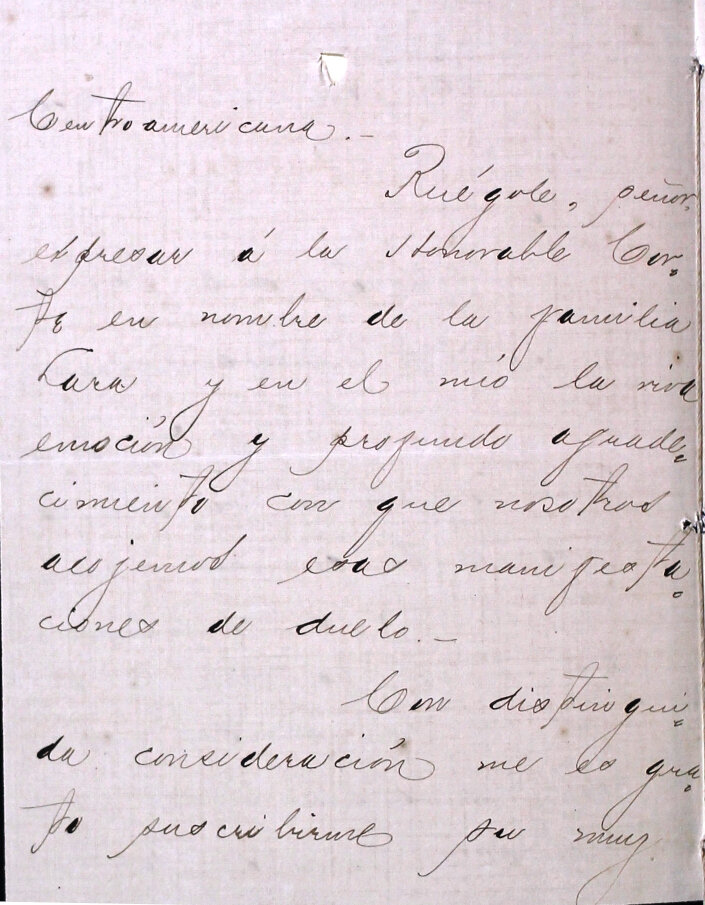 Centroamericana.-
Ruégole, señor,
expresar á la Honorable Cor-
te en nombre de la familia
Lara y en el mío la viva
emoción y profundo agrade-
cimiento con que nosotros
acojemos esas manifesta-
ciones de duelo.-
Con distingui-
da consideración me es gra-
to suscribirme su muy